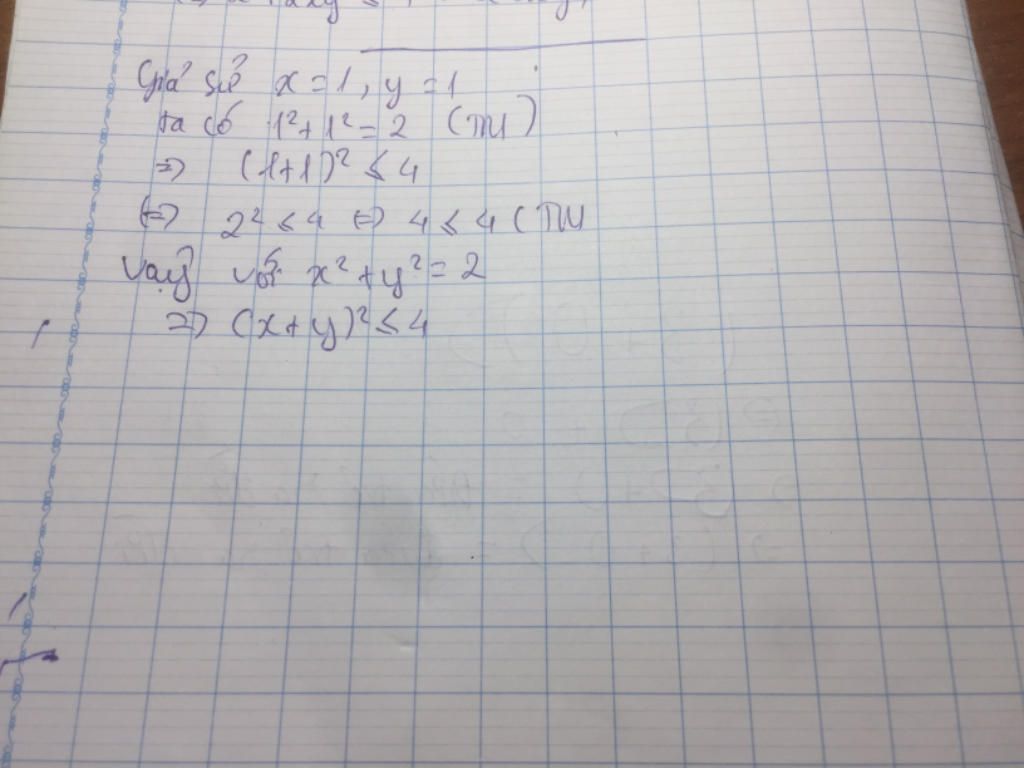 Giả sử x = 1, y = 1
ta có 1² + 1² = 2 (TM)
=> (1+1)² ≤ 4
<=> 2² ≤ 4 <=> 4 ≤ 4 (TM
Vậy với x² + y² = 2
=> (x + y)² ≤ 4